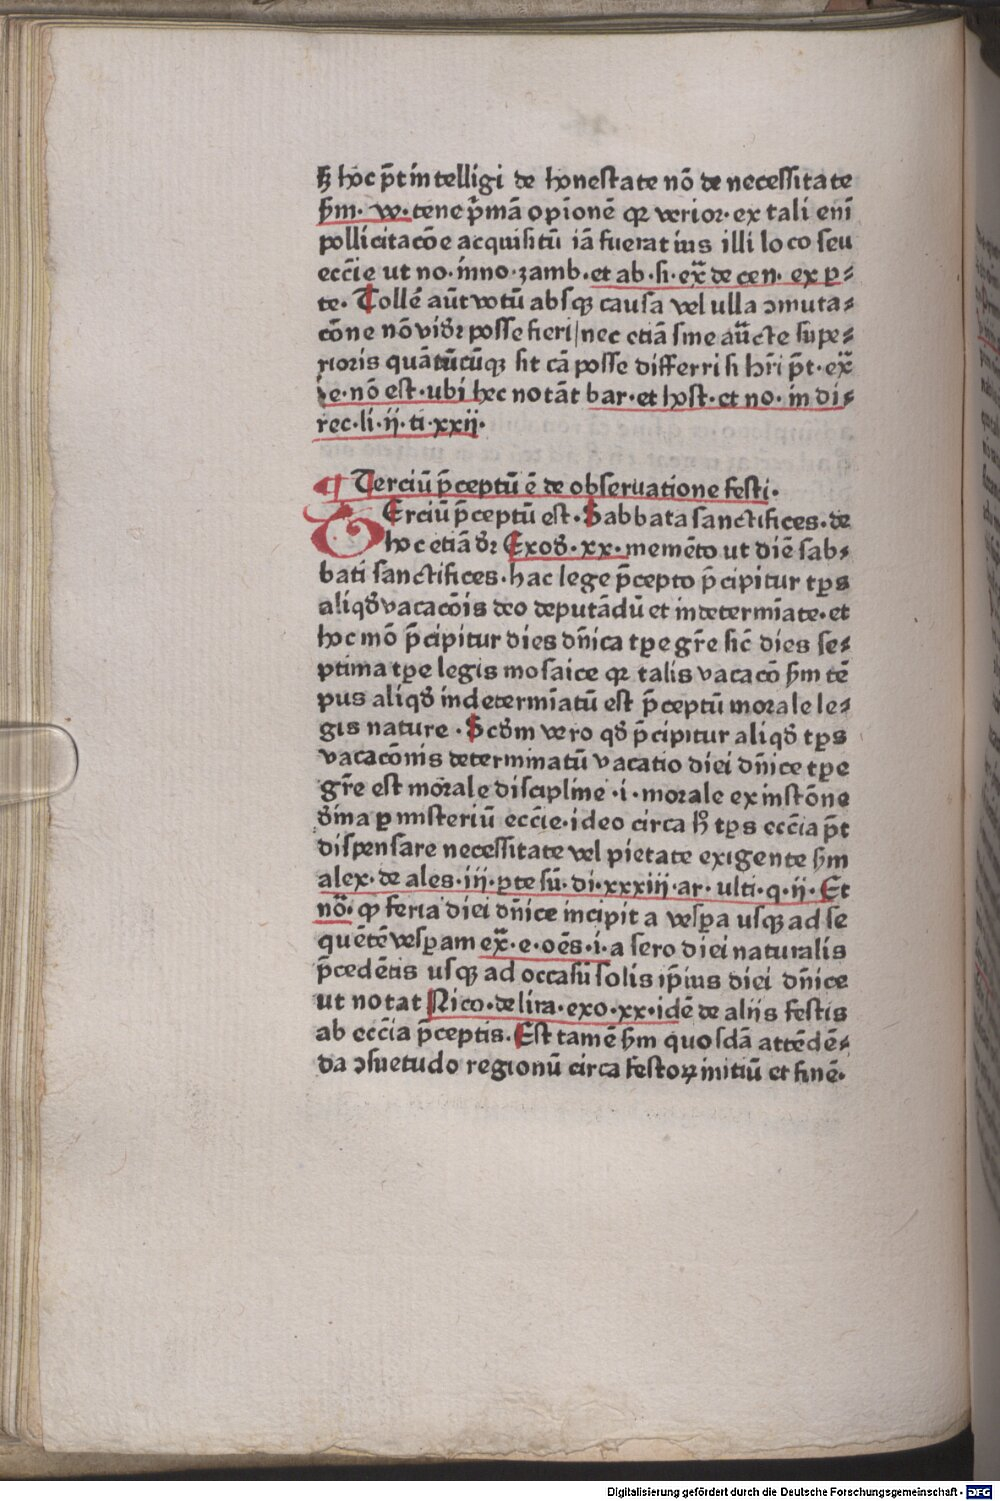 ꝫ hoc p̄t intelligi de honestate nō de necessitate
ẜm· w· tene p̄mā opionē qꝛ verior· ex tali enī
pollicitacōe acquisitū iā fuerat ius illi loco seu
eccīe ut no· inno· zamb· et ab· si· ex̄· de cen· ex p̲⸗
te· Tollē aūt votū absqꝫ causa vel ulla ꝯmuta⸗
cōne nō vid̄r posse fieri/ nec etiā sine aūcte supe⸗
rioris quātūcūqꝫ sit cā posse differri si hr̄i p̄t· ex̄
e· nō est· ubi hec notāt bar· et host· et no· in di⸗
rec· li· ij· ti· xxij·
¶ Terciū p̄ceptū ē de obseruatione festi·
TErciū p̄ceptū est· Sabbata sanctifices· de
hoc etiā d̄r Exod̄· xx· memēto ut diē sab⸗
bati sanctifices· hac lege p̄cepto p̄cipitur tp̄s
aliqd̄ vacacōis deo deputādū et indetermīate· et
hoc mō p̄cipitur dies dn̄ica tp̄e gr̄e sic̄ dies se⸗
ptima tp̄e legis mosaice qꝛ talis vacacō ẜm tē
pus aliqd̄ indetermīatū est p̄ceptū morale le⸗
gis nature · Scd̄m vero qd̄ p̄cipitur aliqd̄ tp̄s
vacacōnis determinatū vacatio diei dn̄ice tp̄e
gr̄e est morale discipline · i · morale ex instōne
d̄ina ꝑ misteriū eccīe· ideo circa h̄ tp̄s eccīa p̄t
dispensare necessitate vel pietate exigente ẜm
alex· de ales· iij· ꝑte sū· di· xxxiij· ar· ulti· q· ij· Et
nō· ꝙ feria diei dn̄ice incipit a vesꝑa usqꝫ ad se
quētē vesꝑam ex̄· e· oēs· i· a sero diei naturalis
p̄cedētis usqꝫ ad occasū solis ip̄ius diei dn̄ice
ut notat Nico· de lira· exo· xx· idē de aliis festis
ab eccīa p̄ceptis. Est tamē ẜm quosdā attēdē⸗
da ꝯsuetudo regionū circa festoꝝ initiū et finē·
Digitalisierung gefördert durch die Deutsche Forschungsgemeinschaft · DFG